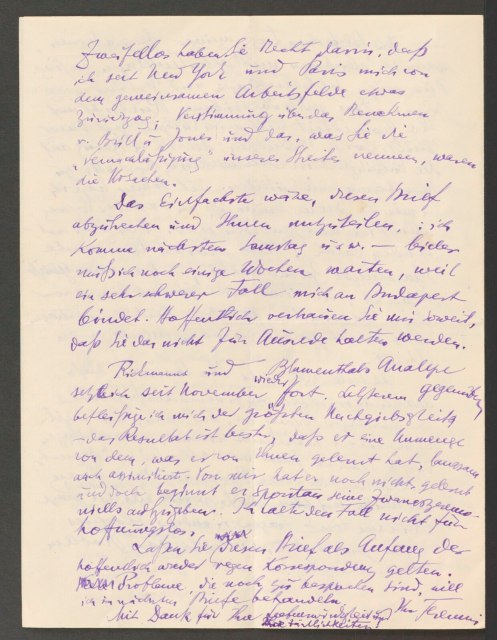 Zweifellos haben Sie Recht darin, daß
ich seit New York und Paris mich von
dem gemeinsamen Arbeitsfelde etwas
zurückzog; Verstimmung über das Benehmen
v. Brill u. Jones und das, was Sie die
„Vernachläßigung" unseres Streites nennen, waren
die Ursachen.
Das Einfachste wäre, diesen Brief
abzubrechen und Ihnen mitzuteilen: ich
komme nächsten Samstag u.s.w. – leider
muß ich noch einige Wochen warten, weil
ein sehr schwerer Fall mich an Budapest
bindet. Hoffentlich vertrauen Sie mir soweit,
daß Sie das nicht für Ausrede halten werden.
Rickmanns und Blumenthals Analyse
setzte ich seit November wieder fort. Letzterem gegenüber
befleißige ich mich der größten Nachgiebigkeit
– das Resultat ist bester, daß er eine Unmenge
von dem, was er von Ihnen gelernt hat, langsam
auch assimiliert. Von mir hat er noch nichts gelernt
und doch beginnt er spontan seine Zwangszeremo-
niells aufzugeben. Ich halte den Fall nicht für
hoffnungslos.
Laßen Sie diesen Brief als Anfang der
hoffentlich wieder regen Korrespondenz gelten.
Probleme, die noch zu besprechen sind, will
ich im nächsten Briefe behandeln.
Mit Dank für Ihre
Ihr Ferenczi